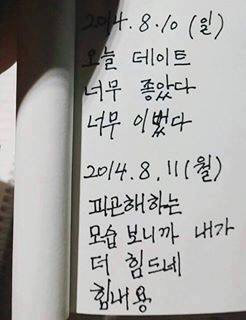 2014.8.10 (일)
오늘 데이트
너무 좋았다
너무 이뻤다
2014.8.11(월)
피곤해하는
모습 보니까 내가
더 힘드네
힘내용